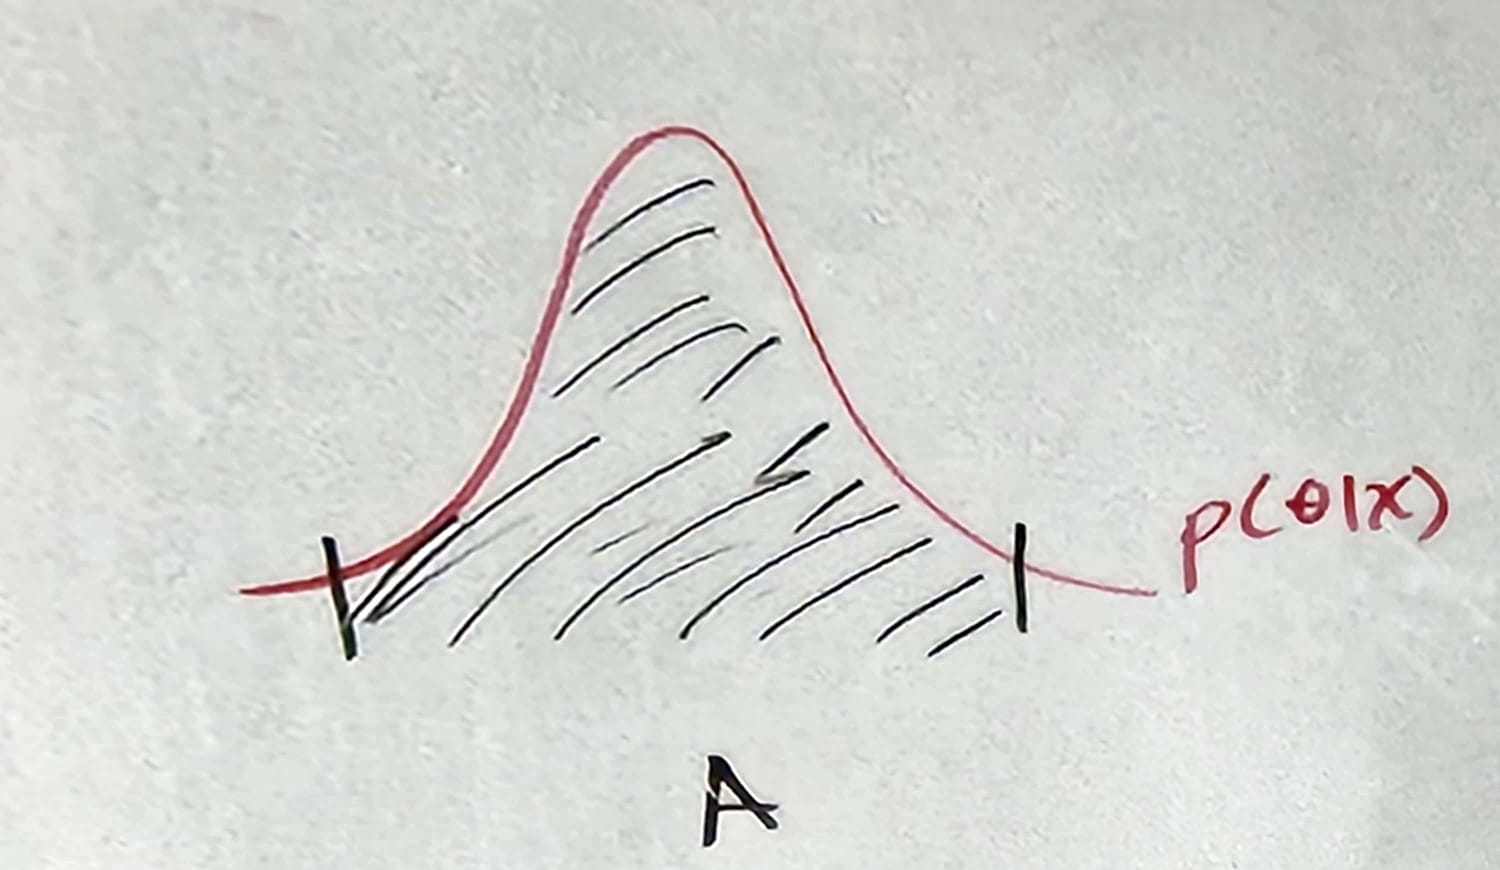 p(θ|x)
A